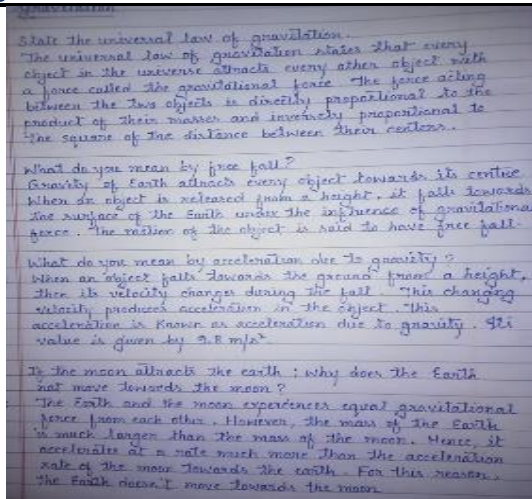 Gravitation
State the universal law of gravitation.
The universal law of gravitation states that every
object in the universe attracts every other object with
a force called the gravitational force. The force acting
between the two objects is directly proportional to the
product of their masses and inversely proportional to
the square of the distance between their centers.
What do you mean by free fall?
Gravity of Earth attracts every object towards its centre
When an object is released from a height, it falls towards
the surface of the Earth under the influence of gravitational
force. The motion of the object is said to have free fall.
What do you mean by acceleration due to gravity?
When an object falls towards the ground from a height,
then its velocity changes during the fall. This changing
velocity produces acceleration in the object. This
acceleration is known as acceleration due to gravity. Its
value is given by 9.8 m/s²
If the moon attracts the earth ; why does the Earth
not move towards the moon?
The Earth and the moon experiences equal gravitational
force from each other. However, the mass of the Earth
is much larger than the mass of the moon. Hence, it
accelerates at a rate much more than the acceleration
rate of the moon towards the earth. For this reason,
the Earth doesn't move towards the moon